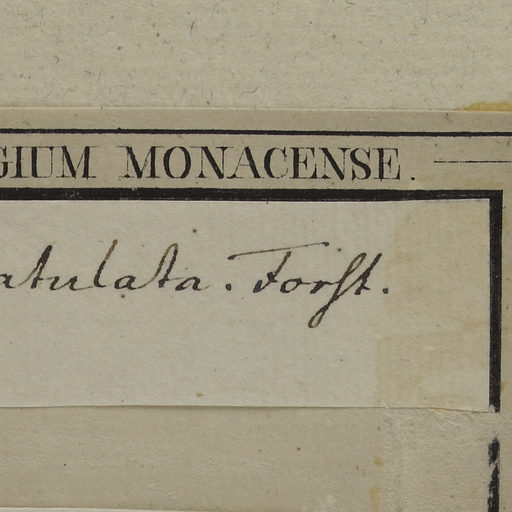 GIUM MONACENSE.
atulata. Forst.